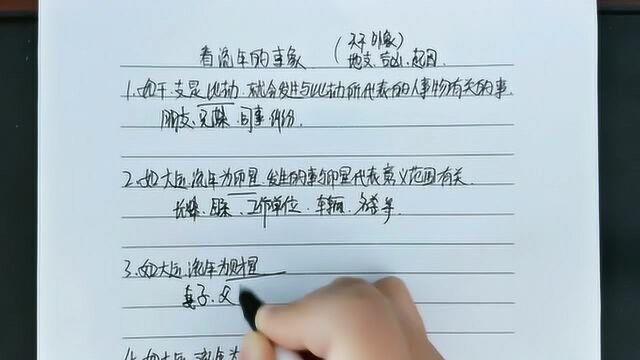 看流年的事象
(天干印象)
地支、吉凶、起因
1.如干、支是比劫、就会发生与比劫所代表的人事物有关的事.
朋友、兄妹、同事、纠纷.
2.如大运、流年为印星、发生的事与印星代表意义范围有关.
长辈、母亲、工作单位、车辆、名誉等.
3.如大运、流年为财星
妻子.父
4.如大运、流年为